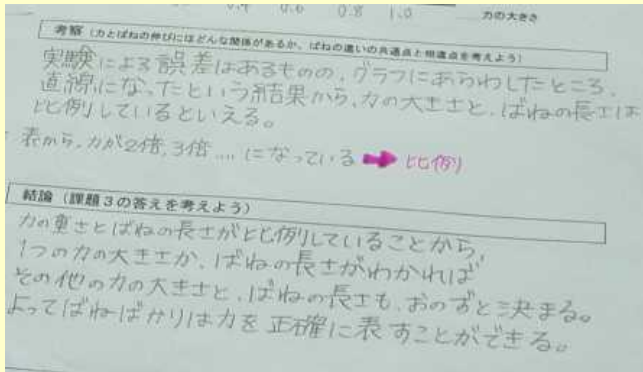 0.4 0.6 0.8 1.0 力の大きさ
考察（力とばねの伸びにはどんな関係があるか、ばねの違いの共通点と相違点を考えよう）
実験による誤差はあるものの、グラフにあらわしたところ、
直線になったという結果から、力の大きさと、ばねの長さは
比例しているといえる。
表から、力が2倍,3倍....になっている ➡ 比例
結論（課題3の答えを考えよう）
力の重さとばねの長さが比例していることから、
1つの力の大きさか、ばねの長さがわかれば
その他の力の大きさと、ばねの長さも、おのずと決まる。
よってばねばかりは力を正確に表すことができる。